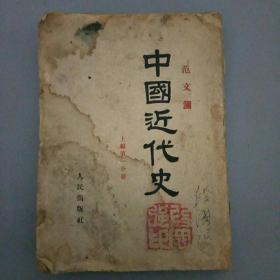 范文瀾
中國近代史
上編第一分冊
人民出版社